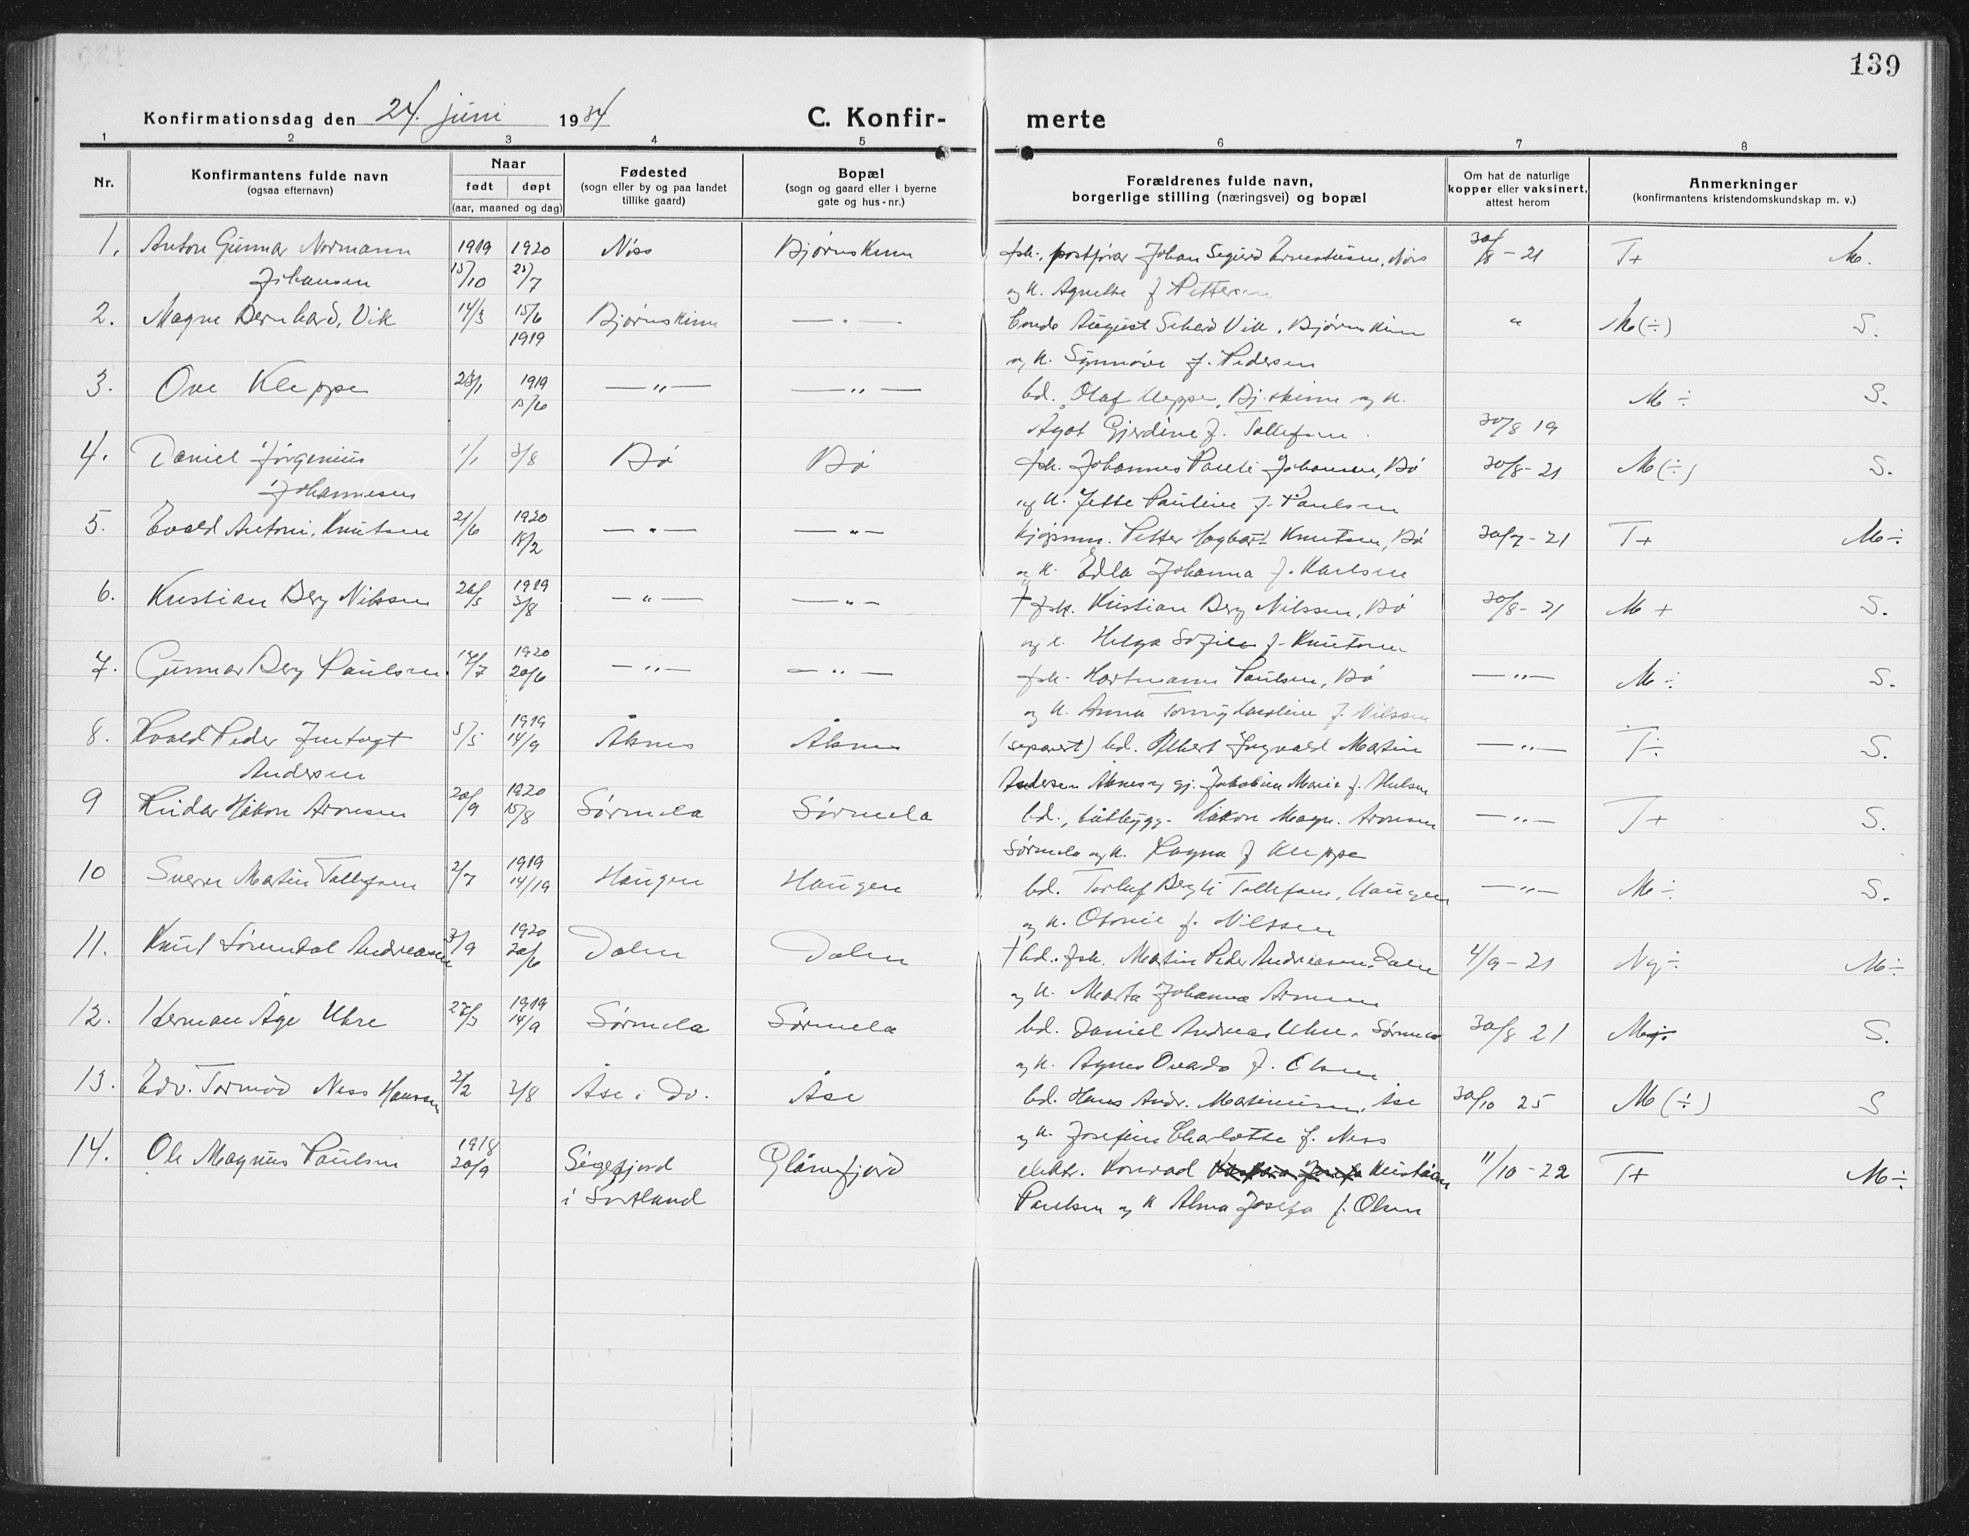 139
Konfirmationsdag den 24. juni 1934 C. Konfirmerte
1 2 3 4 5 6 7 8
Nr. Konfirmantens fulde navn (ogsaa efternavn) Naar født døpt (aar, maaned og dag) Fødested (sogn eller by og paa landet tillike gaard) Bopæl (sogn og gaard eller i byerne gate og hus-nr.) Forældrenes fulde navn, borgerlige stilling (næringsvei) og bopæl Om hat de naturlige kopper eller vaksinert, attest herom Anmerkninger (konfirmantens kristendomskundskap m. v.)
1. Anton Gunnar Normann 1919 1920 Nöss Bjørnskinn fsk., postfører Johan Sigurd 30/8 - 21 T+ M.
Johansen 15/10 25/7 og h. Agnethe f. Pettersen
2. Magne Bernhard, Vik 14/3 15/6 Bjørnskinn — . — August Vik, Bjørnskinn " M(÷) S.
1919 og h. Synnøve f. Pedersen
3. Ove Kleppe 28/1 1919 — " — — " — bd. Olaf Kleppe, Bj.skinn og h. M ÷ S.
15/6 Ågot Gjerdine f. Tollefsen. 30/8 19
4. Daniel Jørgenius 1/1 3/8 Bö Bö fsk. Johannes Pauli Johansen, Bö 30/8 - 21 M(÷) S.
Johannesen og h. Jette Pauline f. Paulsen
5. Evald Antoni, Knutsen 21/6 1920 — " — — " — kjøpmm. Petter Hagbart Knutsen, Bö 30/7 - 21 T+ M÷
18/2 og h. Edla Johanna f. Karlsen
6. Kristian Berg Nilssen 26/5 1919 — " — — " — † fsk. Kristian Berg Nilssen, Bö 30/8 - 21 M + S.
3/8 og h. Helga Sofie f. Knutsen
7. Gunnar Berg Paulsen 1920 — " — — " — fsk. Hartmann Paulsen, Bö — " — M ÷ S.
20/6 og h. Anna f. Nilssen
8. Peder 5/5 1919 Åknes Åknes (separert) bd. Albert Ingvald Martin — " — T÷ S.
Andersen 14/9 Andersen Åknes og gj. Jakobine Marie f.
9 Reidar Håkon Aronsen 20/9 1920 Sørmela Sørmela bd., båtbygg. Håkon Magn. Aronsen — " — T+ S.
15/8 Sørmela og h. Ragna f. Kleppe
10 Sverre Martin Tollefsen 2/7 1919 Haugen Haugen bd. Torleif Bergli Tollefsen, Haugen — " — M÷ S.
14/19 og h. Otonie f. Nilssen
11. Knut Sørendal Andreasen 3/9 1920 Dalen Dalen † bd. fsk. Martin Peder Andreasen, Dalen 4/9 - 21 Ng÷ M÷
20/6 og h. Marta Johanna Aronsen
12. Herman Åge Uhre 1919 Sørmela Sørmela bd. Daniel Andreas Uhre, Sørmela 30/8 21 S.
14/9 og h. Agnes f. Olsen
13. Edv. Tormod Ness Hanssen 2/2 3/8 Åse i Dv. Åse bd. Hans Andr. Martinussen, Åse 30/10 25 M(÷) S
og h. Josefine Charlotte f. Ness
14. Ole Magnus Paulsen 1918 Sigefjord Glåmefjord elektr. Konrad Kristian 11/10 - 22 T+ M÷
20/9 i Sortland Paulsen og h Alma Josefa f. Olsen